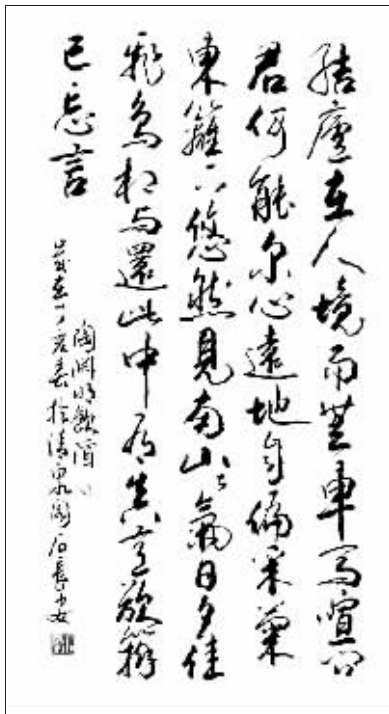 結廬在人境而無車馬喧問
君何能尔心遠地自偏采菊
東籬下悠然見南山々氣日夕佳
飛鳥相与還此中有真意欲辯
已忘言
陶渊明飲酒
歲在丁亥春於清泉阁